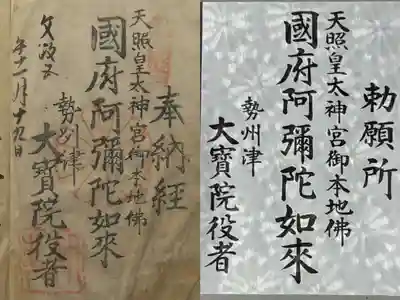 奉納経
天照皇太神宮御本地佛
國府阿彌陀如來
勢州津
大寳院役者
文政五
年十一月十九日
勅願所
天照皇太神宮御本地佛
國府阿彌陀如來
勢州津
大寳院役者